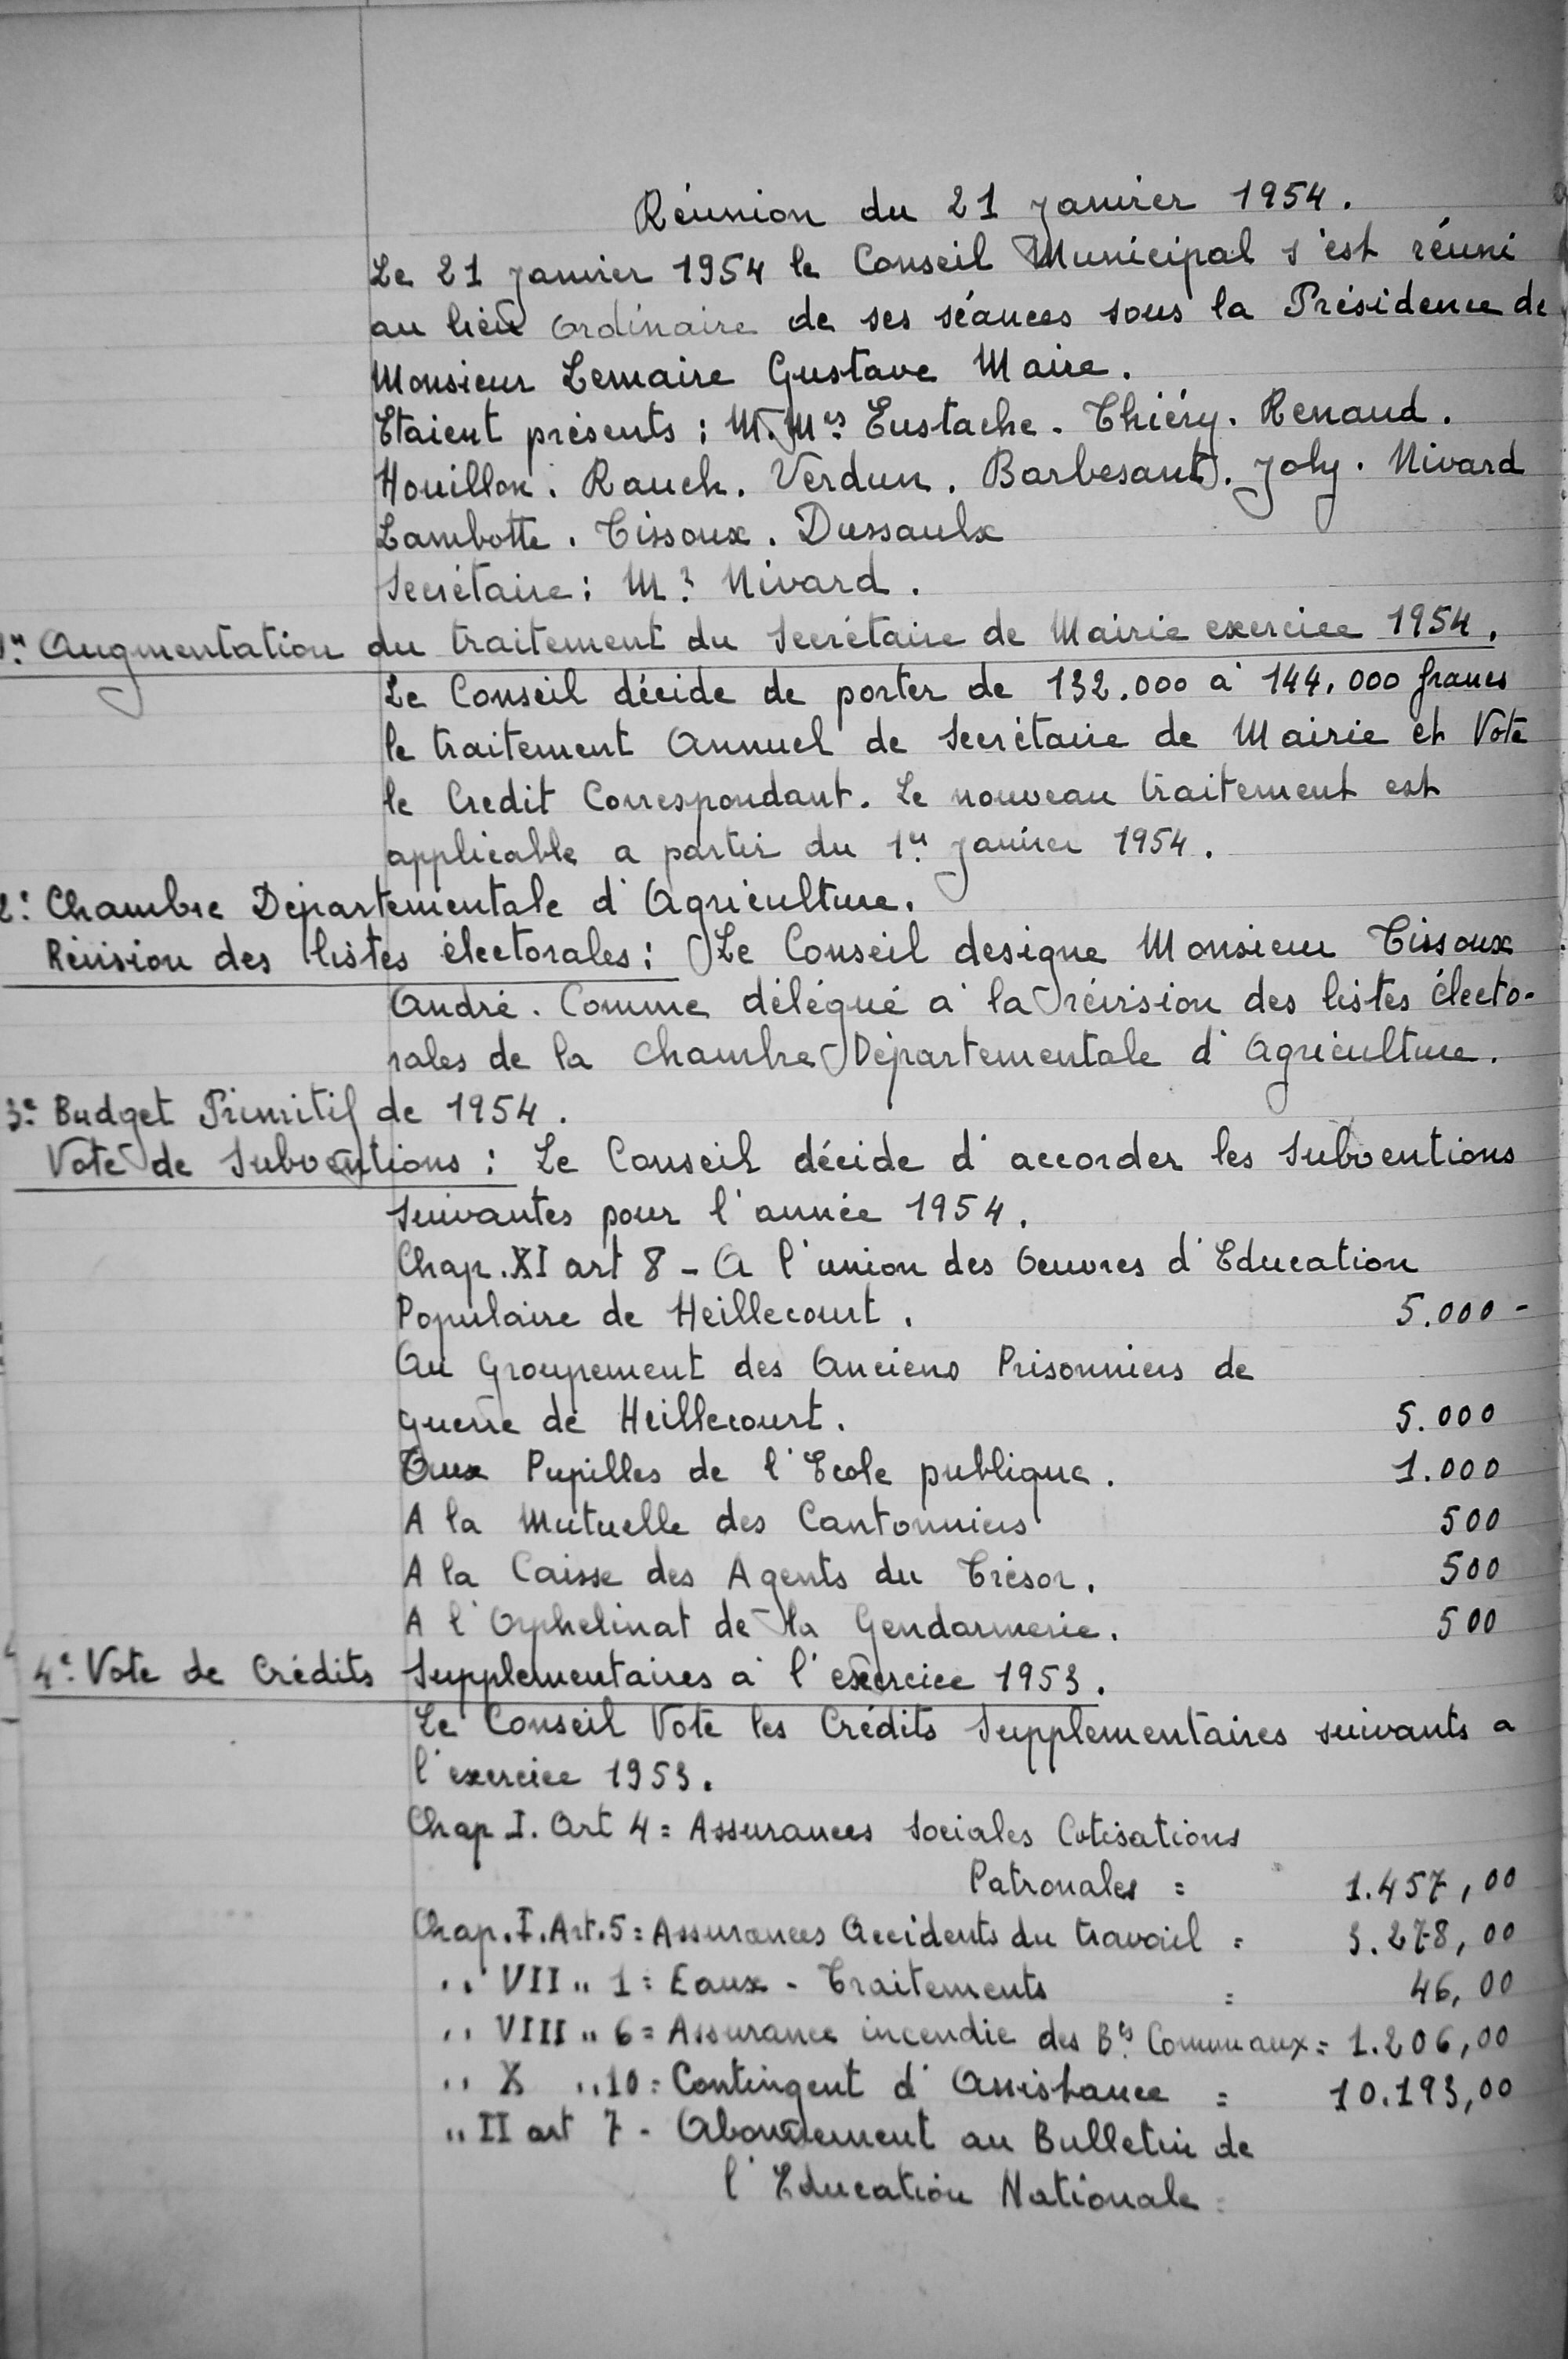 Réunion du 21 janvier 1954.
Le 21 janvier 1954 le Conseil Municipal s'est réuni
au lieu ordinaire de ses séances sous la Présidence de
Monsieur Lemaire Gustave Maire.
Etaient présents : M.Mrs Eustache. Thiéry. Renaud.
Houillon. Rauch. Verdun. Barbesant. Joly. Nivard
Lambotte. Tissoux. Dussaulx
Secrétaire : Mr Nivard.
1er Augmentation du traitement du Secrétaire de Mairie exercice 1954.
Le Conseil décide de porter de 132.000 à 144.000 francs
le traitement Annuel de Secrétaire de Mairie et Vote
le Credit Correspondant. Le nouveau traitement est
applicable a partir du 1er janvier 1954.
2e Chambre Départementale d'Agriculture.
Révision des listes électorales : Le Conseil designe Monsieur Tissoux
André. Comme délégué à la révision des listes électo-
rales de la chambre Départementale d'Agriculture.
3e Budget Primitif de 1954.
Vote de Subventions : Le Conseil décide d'accorder les Subventions
suivantes pour l'année 1954.
Chap. XI art 8 - A l'union des Oeuvres d'Education
Populaire de Heillecourt. 5.000 -
Au Groupement des Anciens Prisonniers de
guerre de Heillecourt. 5.000
Aux Pupilles de l'Ecole publique. 1.000
A la Mutuelle des Cantonniers 500
A la Caisse des Agents du Trésor. 500
A l'Orphelinat de la Gendarmerie. 500
4e Vote de Crédits Supplementaires à l'exercice 1953.
Le Conseil Vote les Crédits Supplementaires suivants a
l'exercice 1953.
Chap I. Art 4 = Assurances Sociales Cotisations
Patronales = 1.457,00
Chap. I. Art. 5 = Assurances Accidents du travail = 3.278,00
" VII " 1 = Eaux - Traitements = 46,00
" VIII " 6 = Assurance incendie des Bts Communaux = 1.206,00
" X " 10 = Contingent d'Assistance = 10.193,00
" II art 7 - Abonnement au Bulletin de
l'Education Nationale =